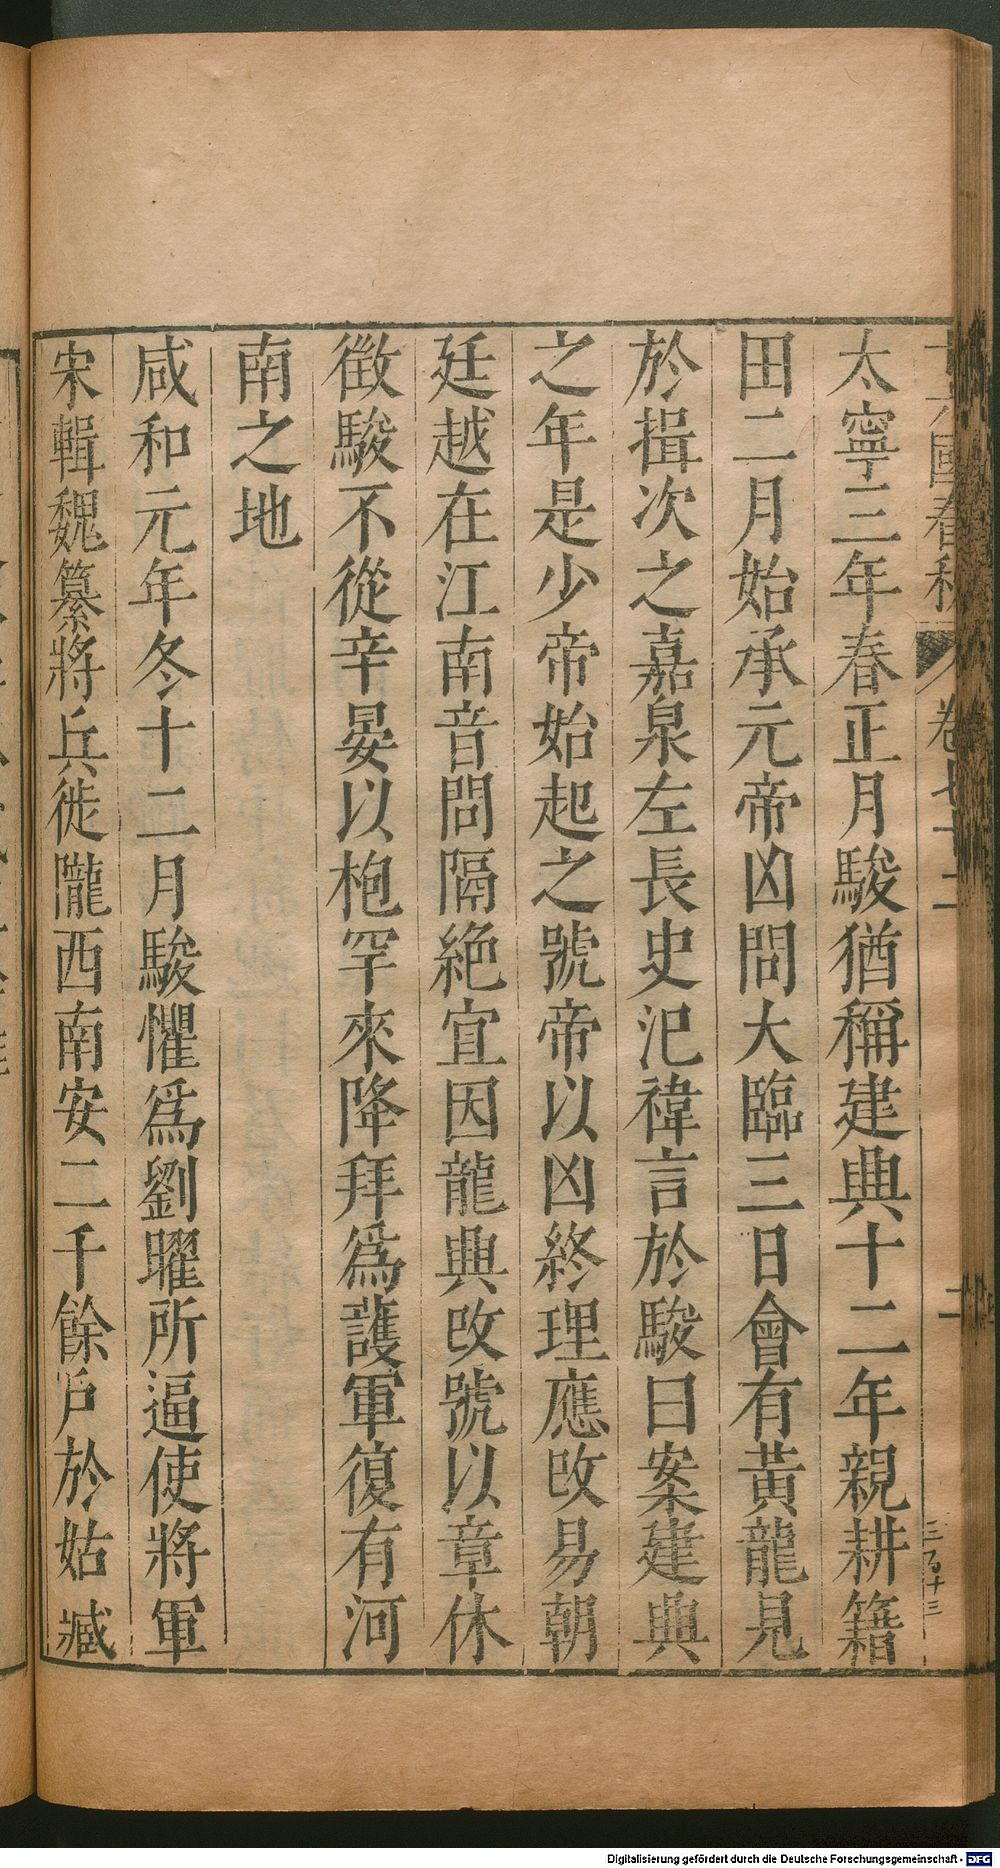 國春秋 卷七十二 二
太寧三年春正月駿猶稱建興十二年親耕籍
田二月始承元帝凶問大臨三日會有黃龍見
於揖次之嘉泉左長史氾禕言於駿曰案建興
之年是少帝始起之號帝以凶終理應改易朝
廷越在江南音問隔絶宜因龍興改號以章休
徵駿不從辛晏以枹罕來降拜爲護軍復有河
南之地
咸和元年冬十二月駿懼爲劉曜所逼使將軍
宋輯魏纂將兵徙隴西南安二千餘戶於姑臧
Digitalisierung gefördert durch die Deutsche Forschungsgemeinschaft - DFG